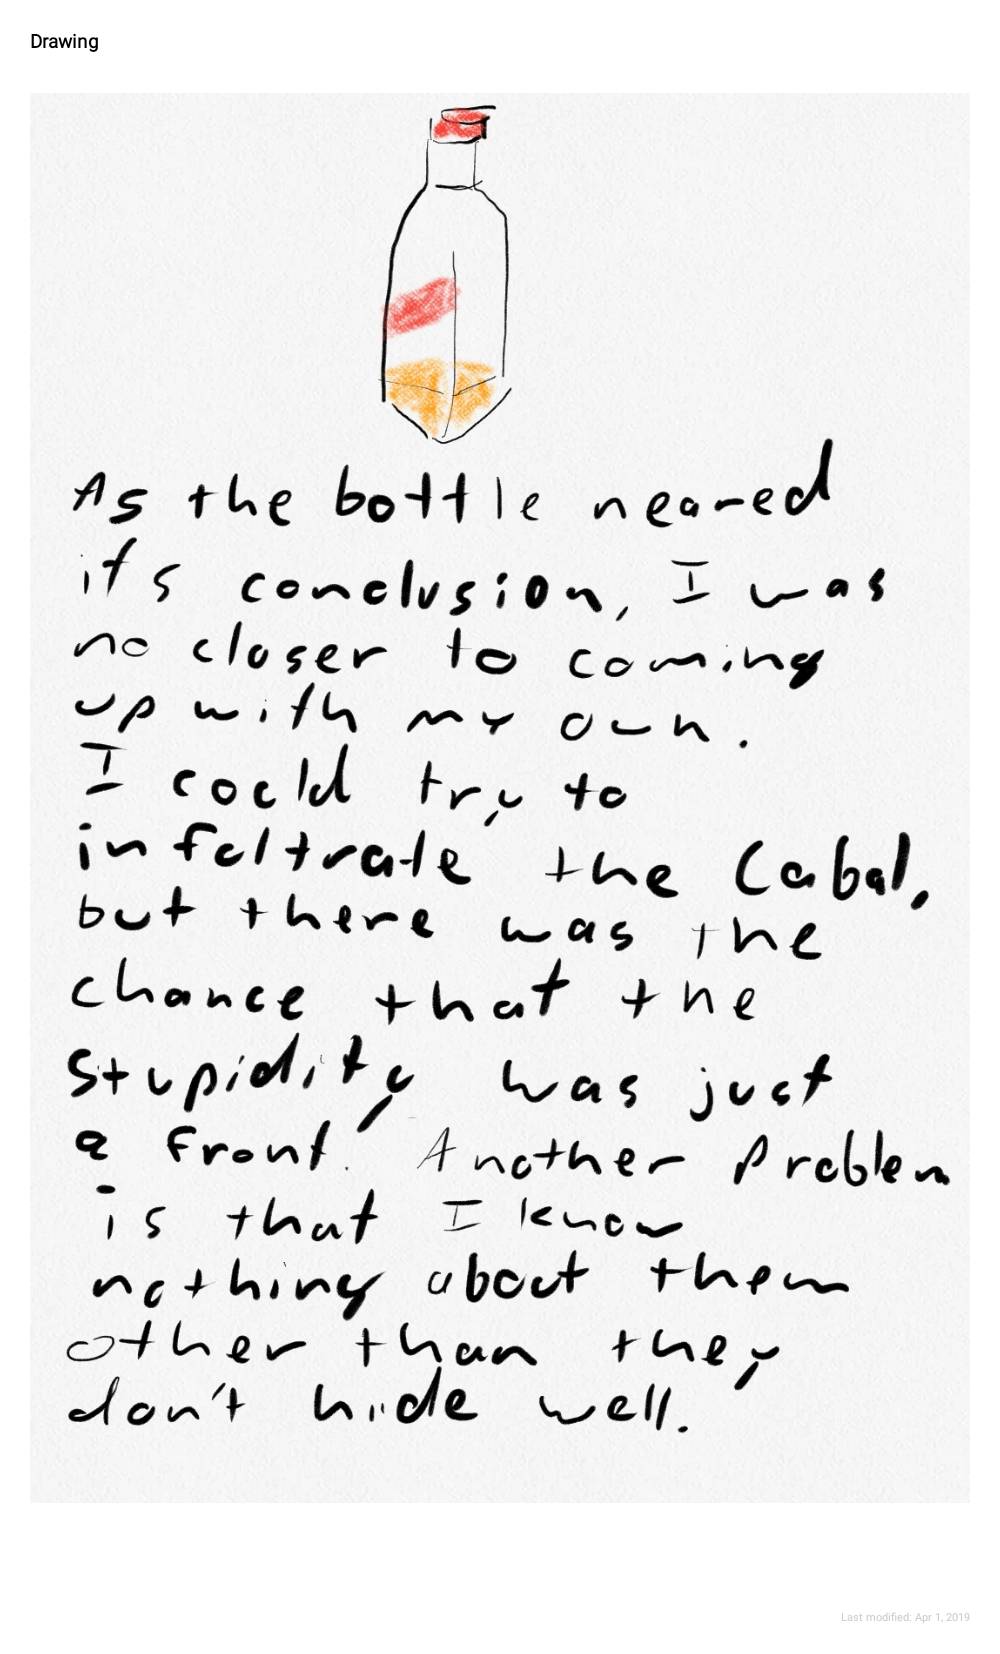 Drawing
As the bottle neared
it's conclusion, I was
no closer to coming
up with my own.
I could try to
infiltrate the Cabal,
but there was the
chance that the
stupidity was just
a front. Another problem
is that I know
nothing about them
other than they
don't hide well.
Last modified: Apr 1, 2019